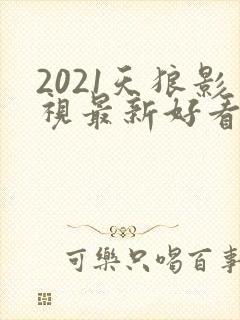 2021天狼影
視最新好看
可樂只喝百事